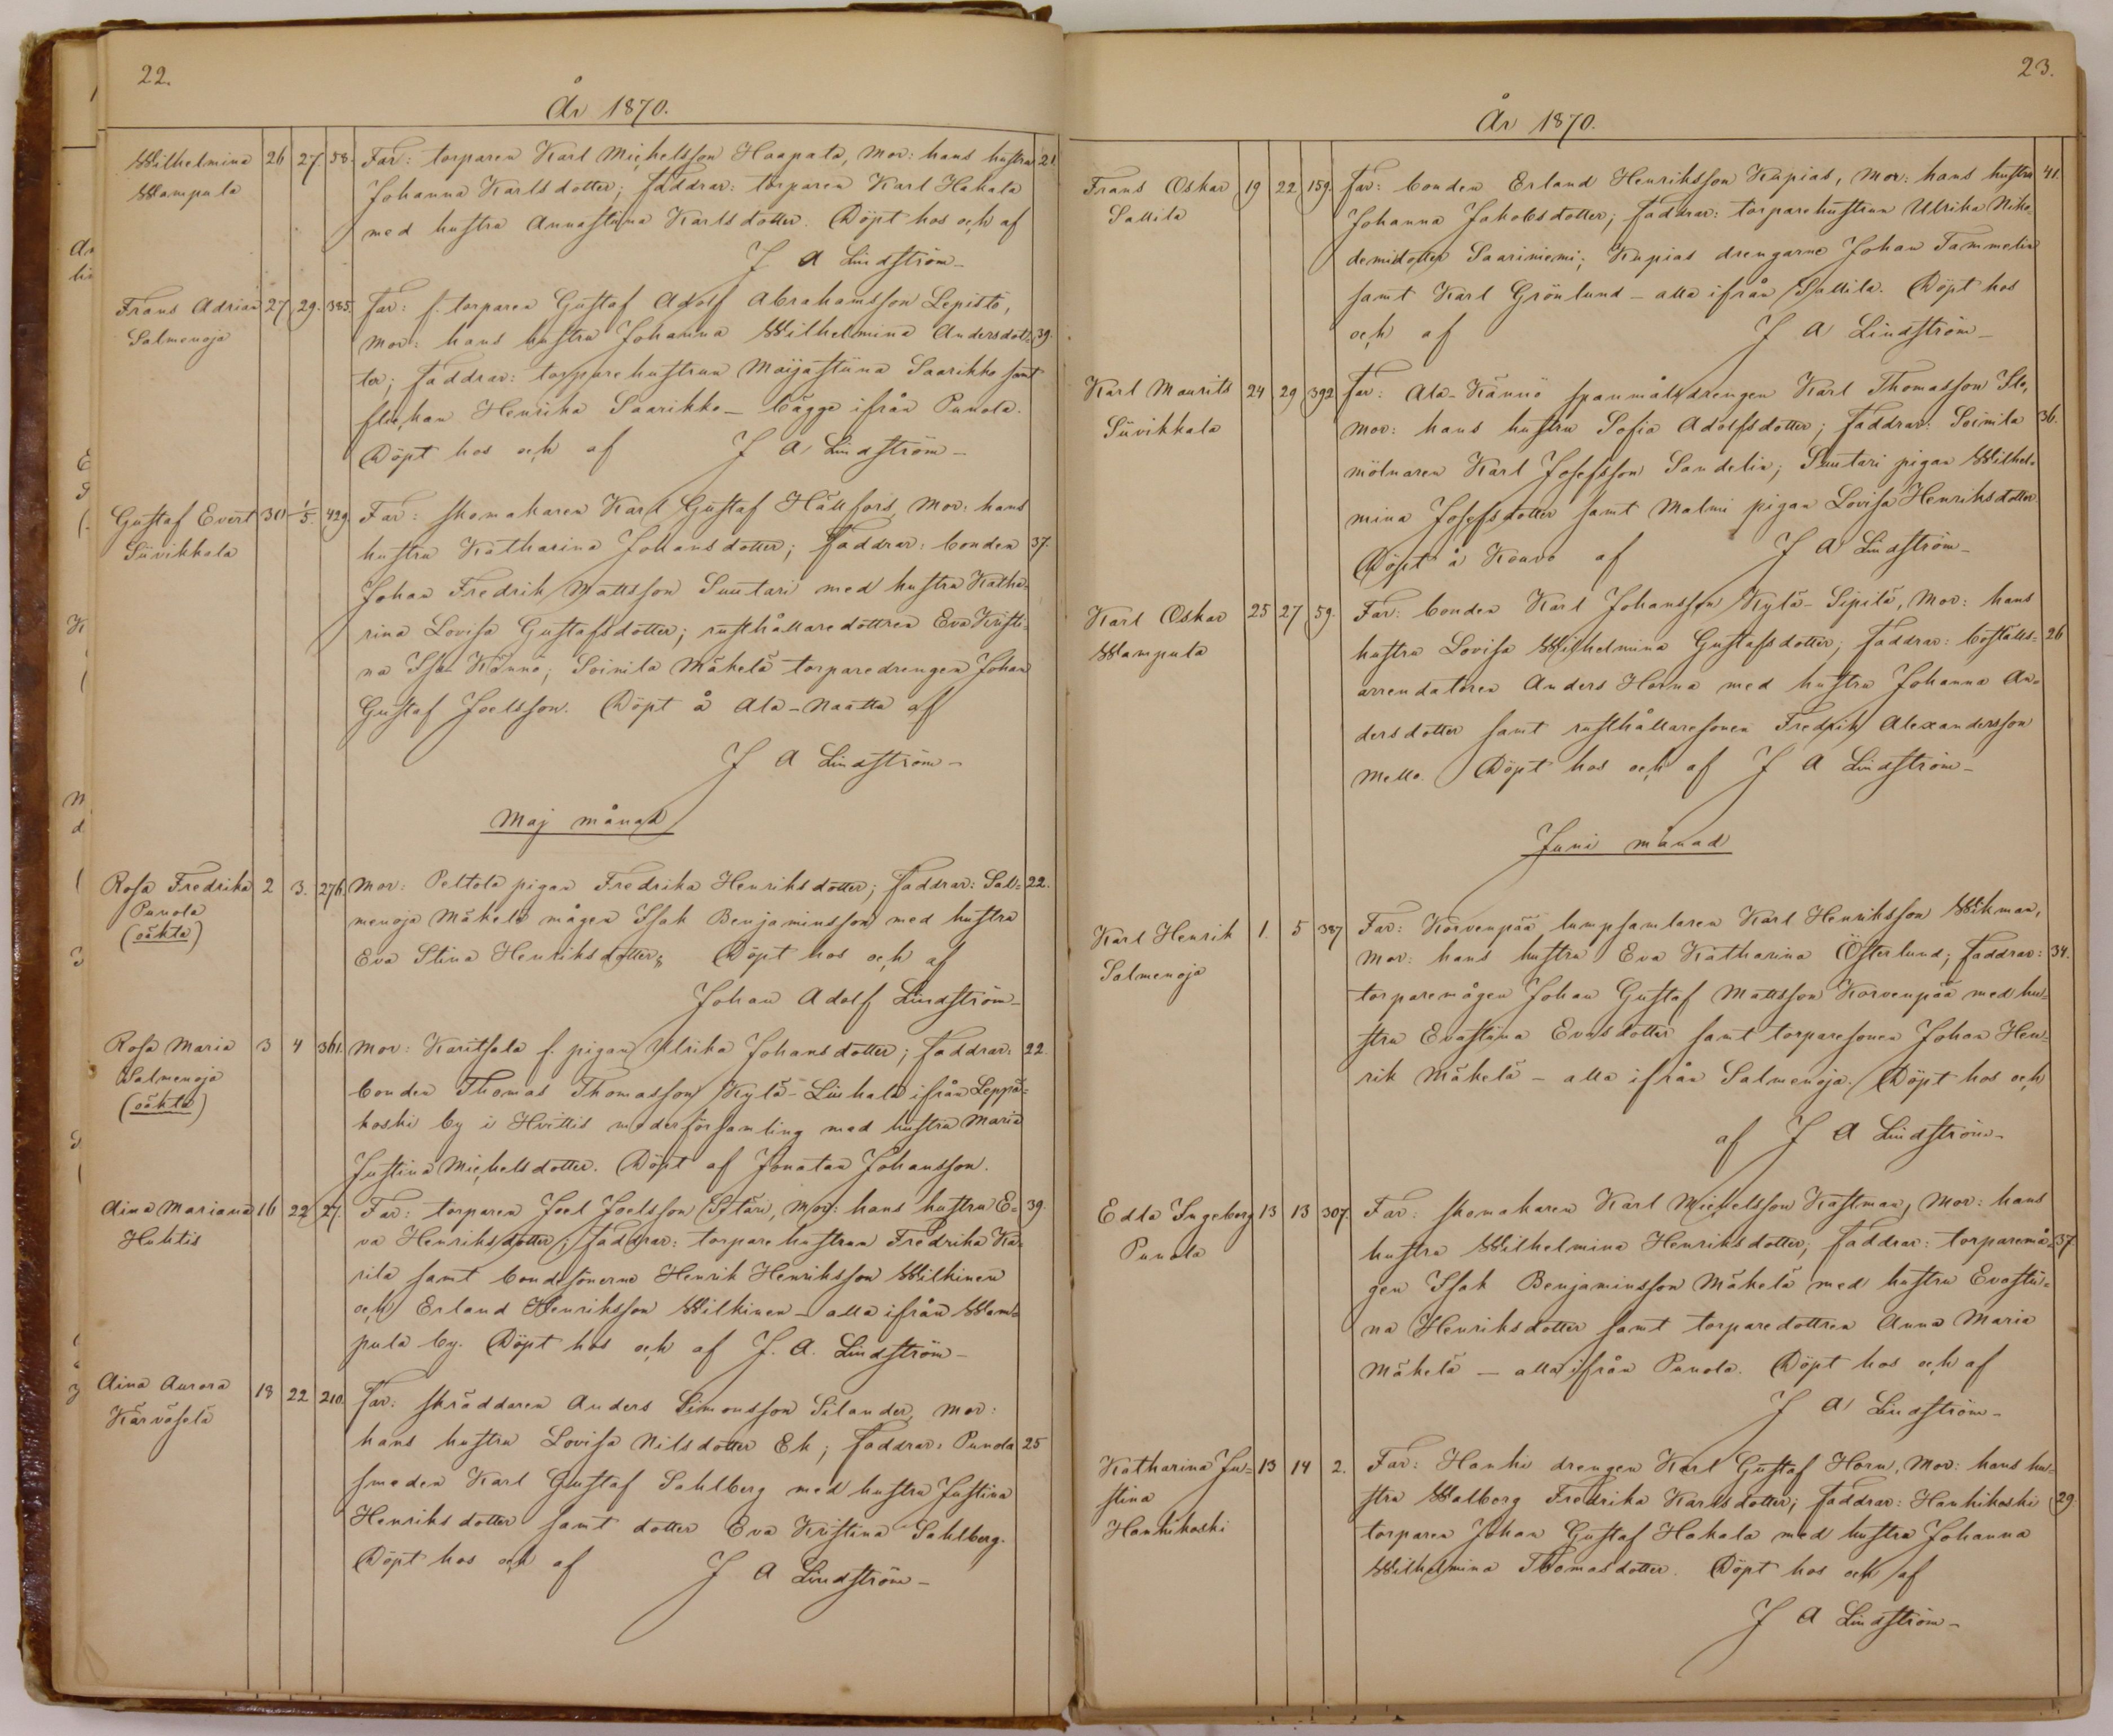 22.
År 1870.
Wilhelmina 26 27 58. Far: torparen Karl Michelsson Haapala, Mor: hans hustru 21.
Wampula Johanna Karlsdotter; Faddrar: torparen Karl Hakala
med hustru Annastina Karlsdotter. Döpt hos och af
J A Lindström
Frans Adrian 27 29. 385. Far: f. torparen Gustaf Adolf Abrahamsson Lepistö,
Salmenoja Mor: hans hustru Johanna Wilhelmina Andersdot= 39.
ter; Faddrar: torparehustrun Maijastiina Saarikko samt
flickan Henrika Saarikko – bägge ifrån Punola.
Döpt hos och af J A Lindström
Gustaf Evert 30 1/5. 429. Far: skomakaren Karl Gustaf Hällfors, Mor: hans
Siivikkala hustru Katharina Johansdotter; Faddrar: bonden 37.
Johan Fredrik Mattsson Suutari med hustru Katha=
rina Lovisa Gustafsdotter; rusthållaredottren Eva Kristi=
na Iso-Kännö; Soinila Mäkelä torparedrengen Johan
Gustaf Joelsson. Döpt å Ala-Naatta af
J A Lindström
Maj månad
Rosa Fredrika 2 3. 276. Mor: Peltola pigan Fredrika Henriksdotter; Faddrar: Sal= 22.
Punola menoja Mäkelä mågen Isak Benjaminsson med hustru
(oäkta) Eva Stina Henriksdotter; Döpt hos och af
Johan Adolf Lindström
Rosa Maria 3 4 361. Mor: Karitsala f. pigan Ulrika Johansdotter; Faddrar: 22.
Salmenoja bonden Thomas Thomasson Kylä-Liuhala ifrån Leppä=
(oäkta) koski by i Hvittis moderförsamling med hustru Maria
Justina Michelsdotter. Döpt af Jonatan Johansson.
Aina Mariana 16 22 27. Far: torparen Joel Joelsson Iltäri, Mor: hans hustru E= 39.
Huhtis va Henriksdotter; Faddrar: torparehustrun Fredrika Ka=
rila samt bondesönerne Henrik Henriksson Wilkinen
och Erland Henriksson Wilkinen – alla ifrån Wam=
pula by. Döpt hos och af J. A. Lindström
Aina Aurora 18 22 210. Far: skräddaren Anders Simonsson Silander, Mor:
Kärväselä hans hustru Lovisa Nilsdotter Ek; Faddrar: Punola 25
smeden Karl Gustaf Sahlberg med hustru Justina
Henriksdotter samt dotter Eva Kristina Sahlberg.
Döpt hos och af J A Lindström
23.
År 1870.
Frans Oskar 19 22 159. Far: bonden Erland Henriksson Kupias, Mor: hans hustru 41.
Sallila Johanna Jakobsdotter; Faddrar: torparehustrun Ulrika Niko=
demidotter Saariniemi; Kupias drengarne Johan Tammelin
samt Karl Grönlund – alla ifrån Sallila. Döpt hos
och af J A Lindström
Karl Maurits 24 29 392 Far: Ala-Kännö spanmålsdrengen Karl Thomasson Ilo,
Siivikkala Mor: hans hustru Sofia Adolfsdotter; Faddrar: Soinila 36.
mölnaren Karl Josefsson Sandelin; Suutari pigan Wilhel=
mina Josefsdotter samt Malmi pigan Lovisa Henriksdotter
Döpt å Kauvo af J A Lindström
Karl Oskar 25 27 59. Far: bonden Karl Johansson Kylä-Sipilä, Mor: hans
Wampula hustru Lovisa Wilhelmina Gustafsdotter; Faddrar: boställs= 26
arrendatoren Anders Horna med hustru Johanna An=
dersdotter samt rusthållaresonen Fredrik Alexandersson
Mello. Döpt hos och af J A Lindström
Juni månad
Karl Henrik 1. 5 387 Far: Korvenpää lumpsamlaren Karl Henriksson Wikman,
Salmenoja Mor: hans hustru Eva Katharina Österlund; Faddrar: 34.
torparemågen Johan Gustaf Mattsson Korvenpää med hu=
stru Evastina Evasdotter samt torparesonen Johan Hen=
rik Mäkelä – alla ifrån Salmenoja. Döpt hos och
af J A Lindström
Edla Ingeborg 13 13 307. Far: skomakaren Karl Michelsson Kastman, Mor: hans
Punola hustru Wilhelmina Henriksdotter; Faddrar: torparemå= 37
gen Isak Benjaminsson Mäkelä med hustru Evastii=
na Henriksdotter samt torparedottren Anna Maria
Mäkelä – alla ifrån Punola. Döpt hos och af
J A Lindström
Katharina Ju= 13 14 2. Far: Hanhi drengen Karl Gustaf Horn, Mor: hans hu=
stina stru Walborg Fredrika Karlsdotter; Faddrar: Hanhikoski 29.
Hanhikoski torparen Johan Gustaf Hakala med hustru Johanna
Wilhelmina Thomasdotter. Döpt hos och af
J A Lindström